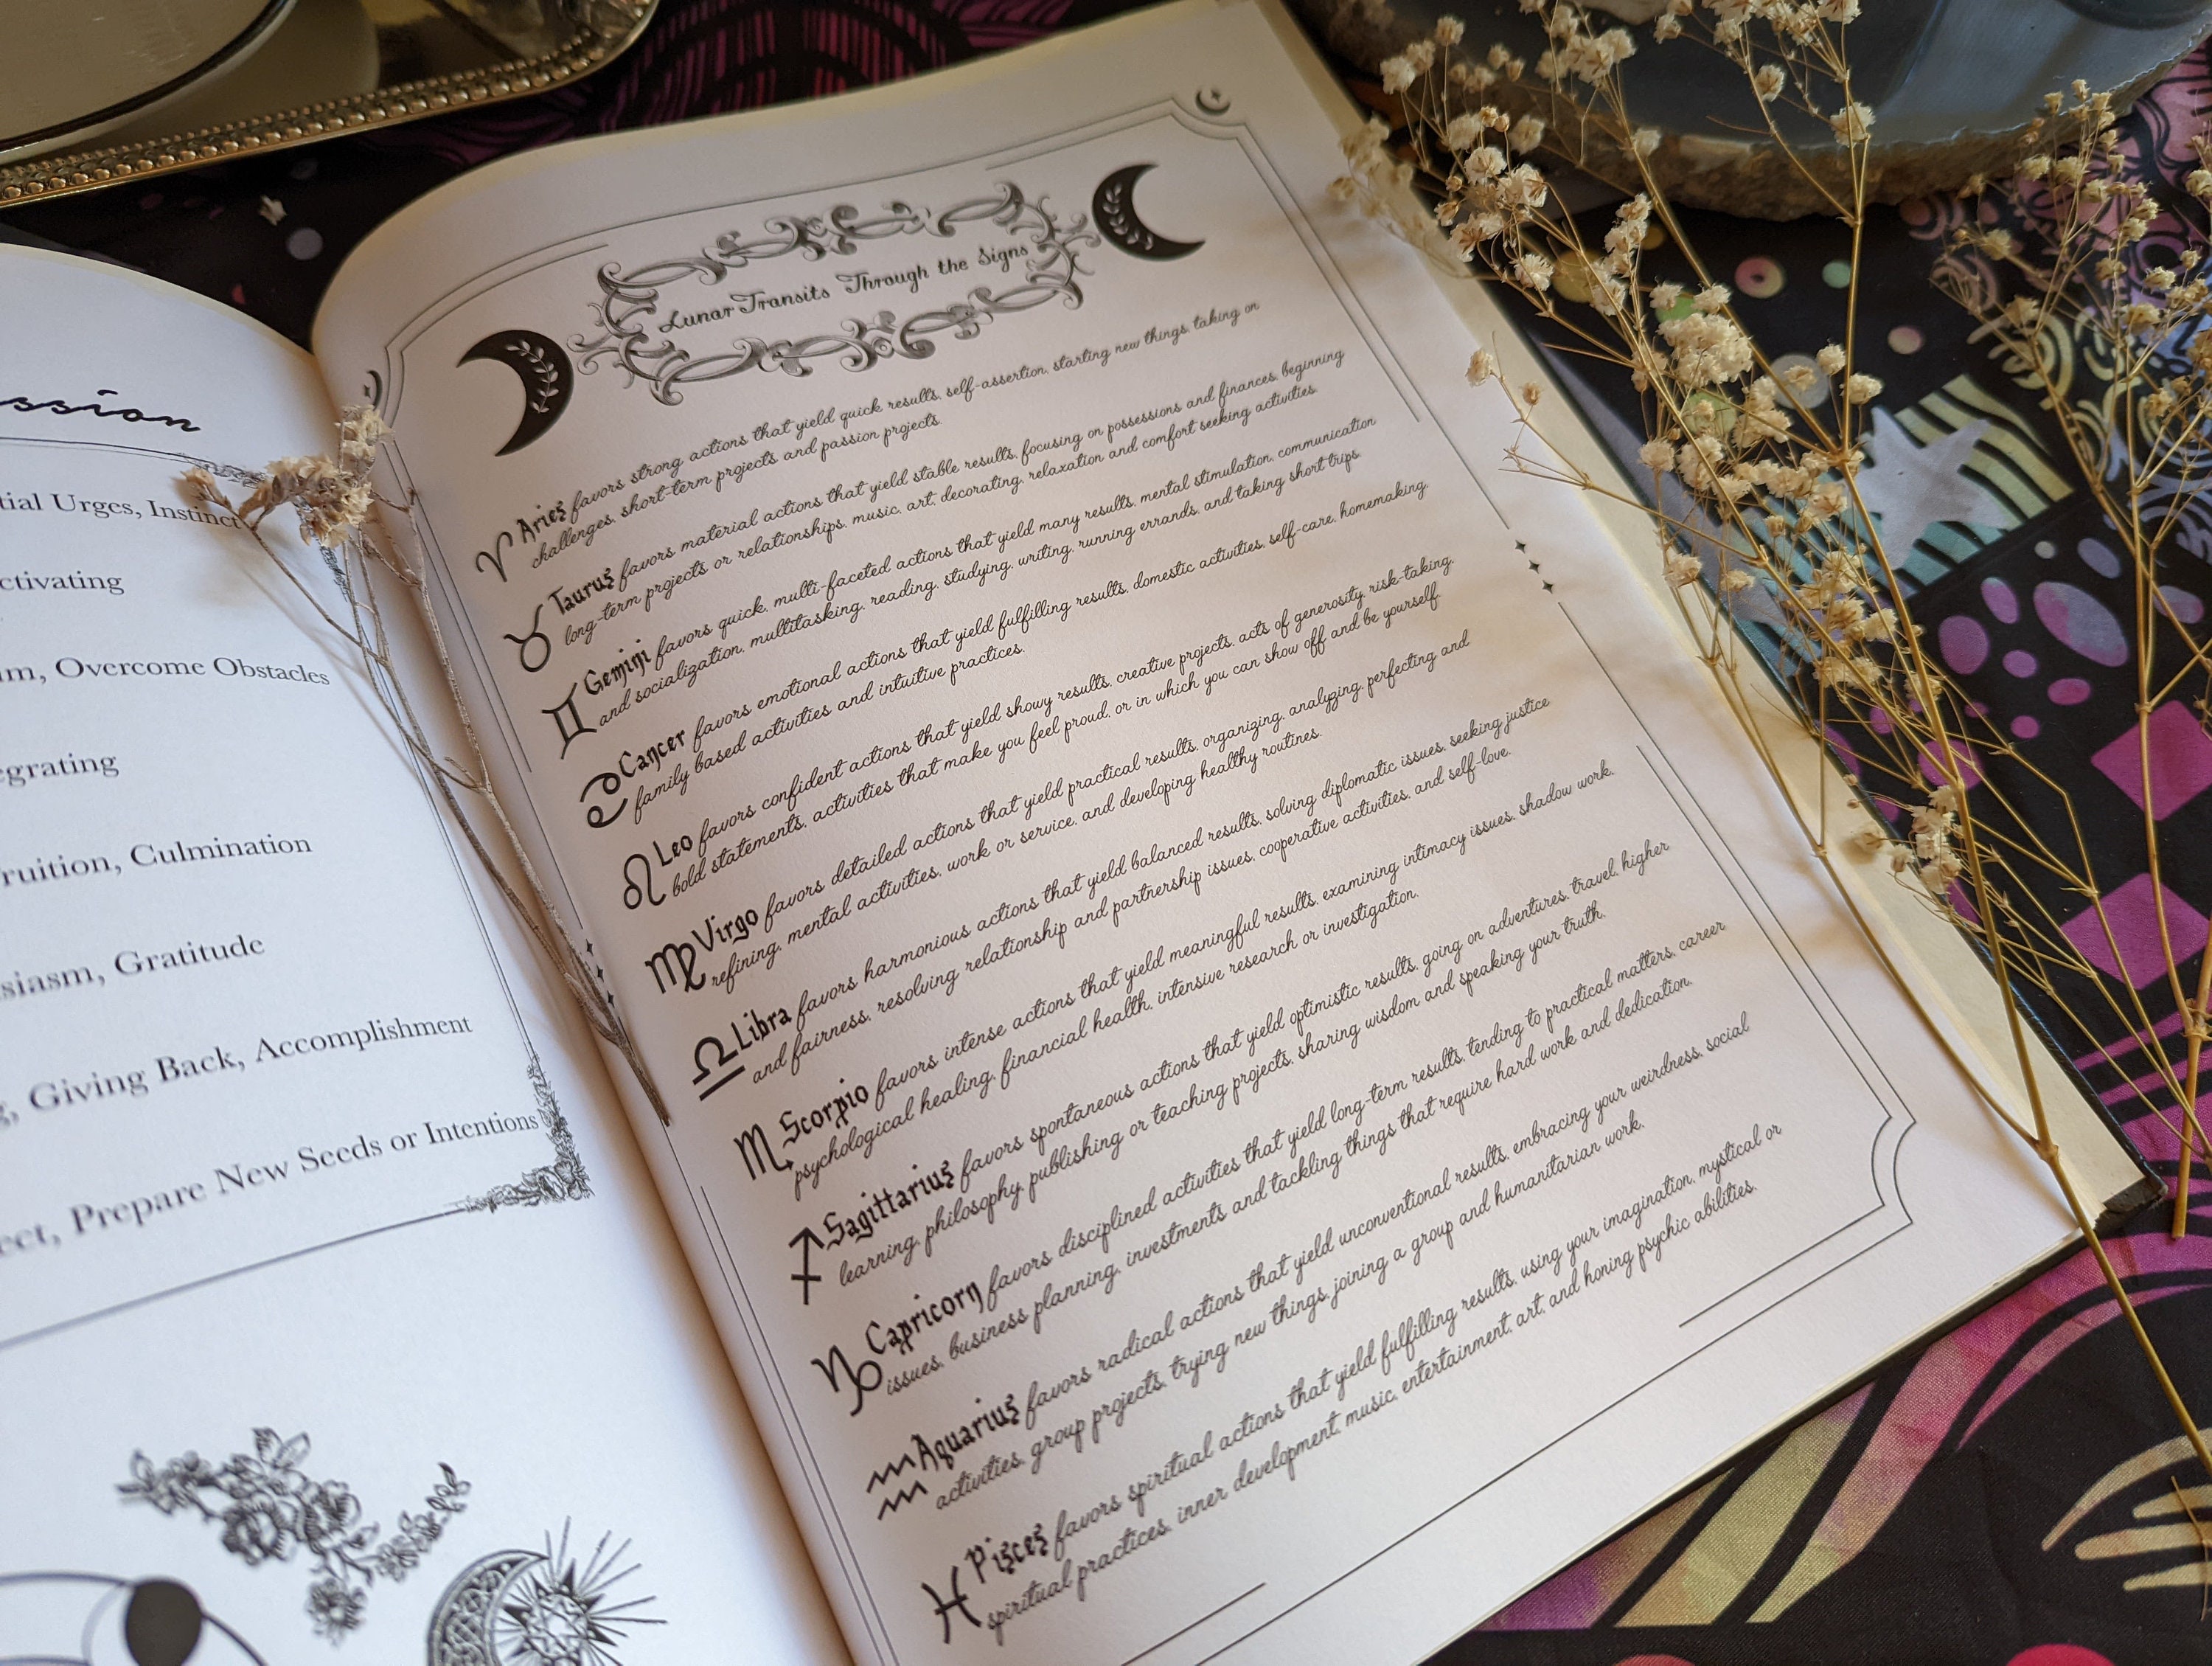 ssion
tial Urges, Instinct
ctivating
um, Overcome Obstacles
egrating
ruition, Culmination
siasm, Gratitude
g, Giving Back, Accomplishment
ect, Prepare New Seeds or Intentions
Lunar Transits Through the Signs
♈ Aries favors strong actions that yield quick results, self-assertion, starting new things, taking on
challenges, short-term projects and passion projects.
♉ Taurus favors material actions that yield stable results, focusing on possessions and finances, beginning
long-term projects or relationships, music, art, decorating, relaxation and comfort seeking activities.
♊ Gemini favors quick, multi-faceted actions that yield many results, mental stimulation, communication
and socialization, multitasking, reading, studying, writing, running errands, and taking short trips.
♋ Cancer favors emotional actions that yield fulfilling results, domestic activities, self-care, homemaking,
family based activities and intuitive practices.
♌ Leo favors confident actions that yield showy results, creative projects, acts of generosity, risk-taking,
bold statements, activities that make you feel proud, or in which you can show off and be yourself.
♍ Virgo favors detailed actions that yield practical results, organizing, analyzing, perfecting and
refining, mental activities, work or service, and developing healthy routines.
♎ Libra favors harmonious actions that yield balanced results, solving diplomatic issues, seeking justice
and fairness, resolving relationship and partnership issues, cooperative activities, and self-love.
♏ Scorpio favors intense actions that yield meaningful results, examining intimacy issues, shadow work,
psychological healing, financial health, intensive research or investigation.
♐ Sagittarius favors spontaneous actions that yield optimistic results, going on adventures, travel, higher
learning, philosophy, publishing or teaching projects, sharing wisdom and speaking your truth.
♑ Capricorn favors disciplined activities that yield long-term results, tending to practical matters, career
issues, business planning, investments and tackling things that require hard work and dedication.
♒ Aquarius favors radical actions that yield unconventional results, embracing your weirdness, social
activities, group projects, trying new things, joining a group and humanitarian work.
♓ Pisces favors spiritual actions that yield fulfilling results, using your imagination, mystical or
spiritual practices, inner development, music, entertainment, art, and honing psychic abilities.